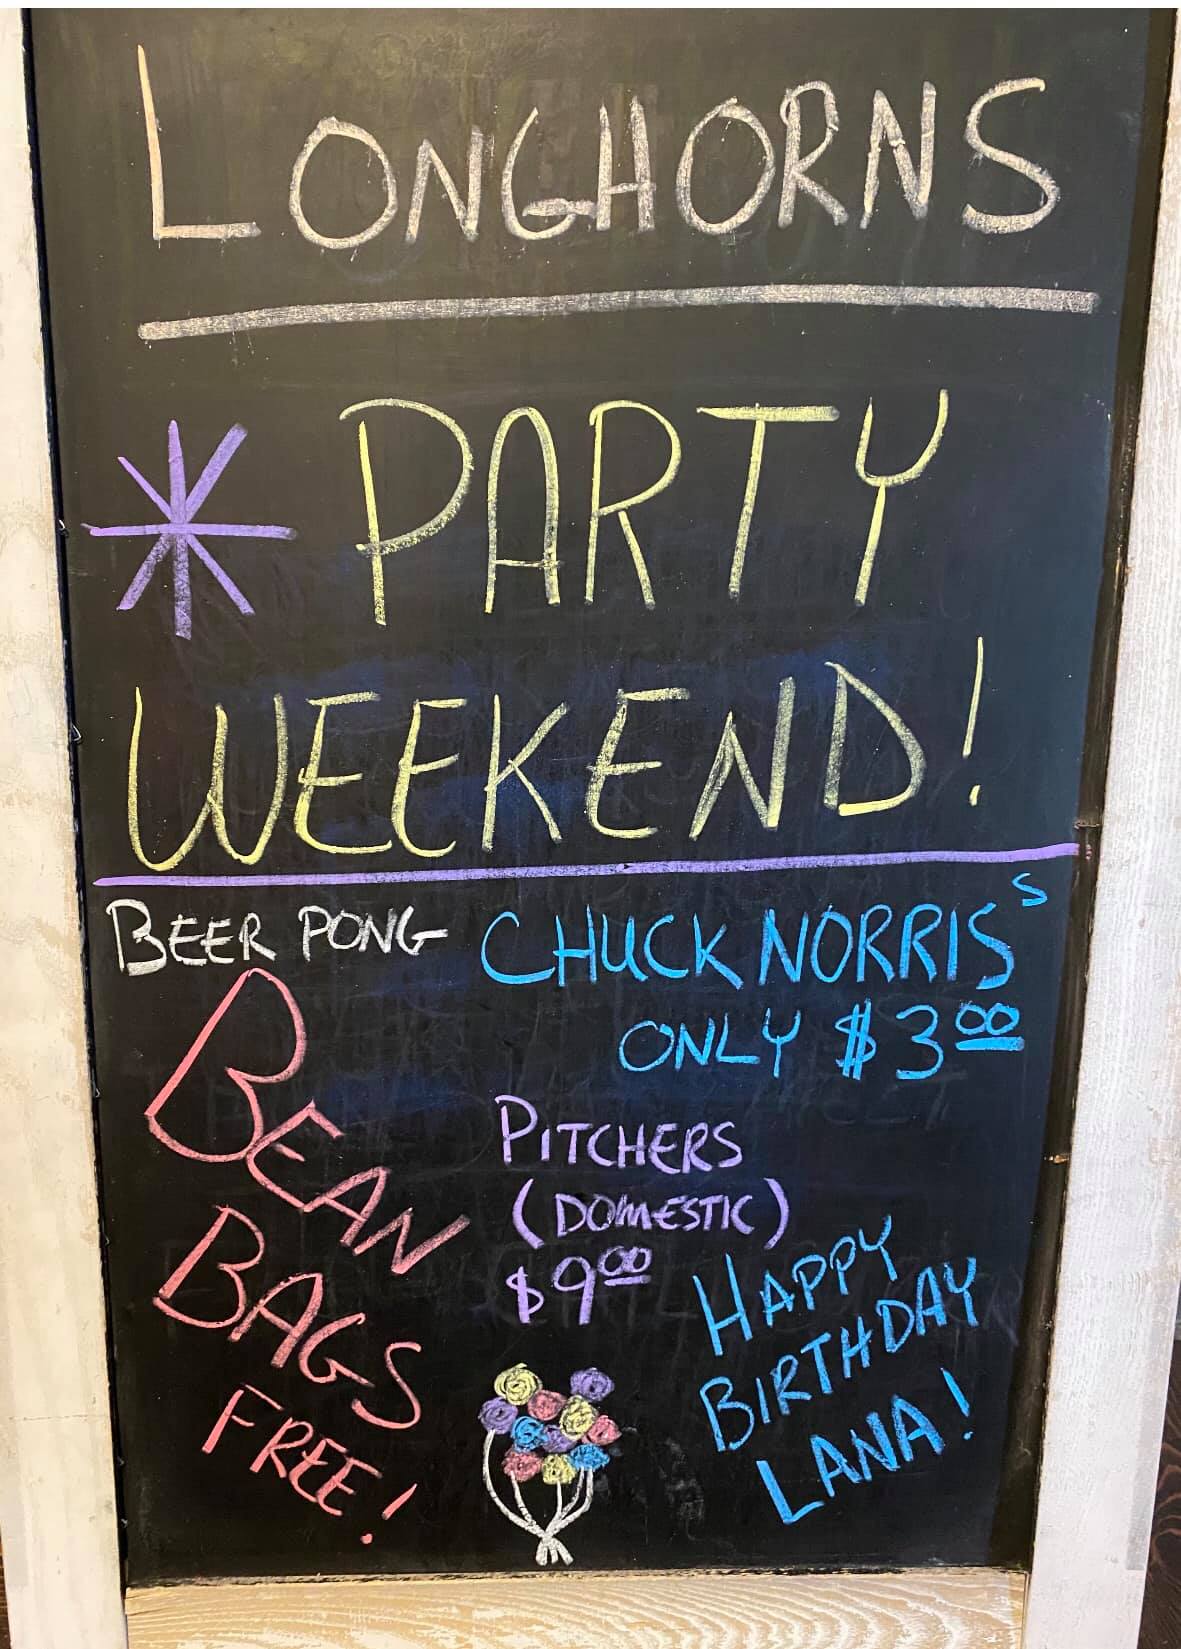 LONGHORNS
* PARTY
WEEKEND!
BEER PONG
BEAN
BAGS
FREE!
CHUCK NORRIS S
ONLY $3 00
PITCHERS
(DOMESTIC)
$9 00
HAPPY
BIRTHDAY
LANA!